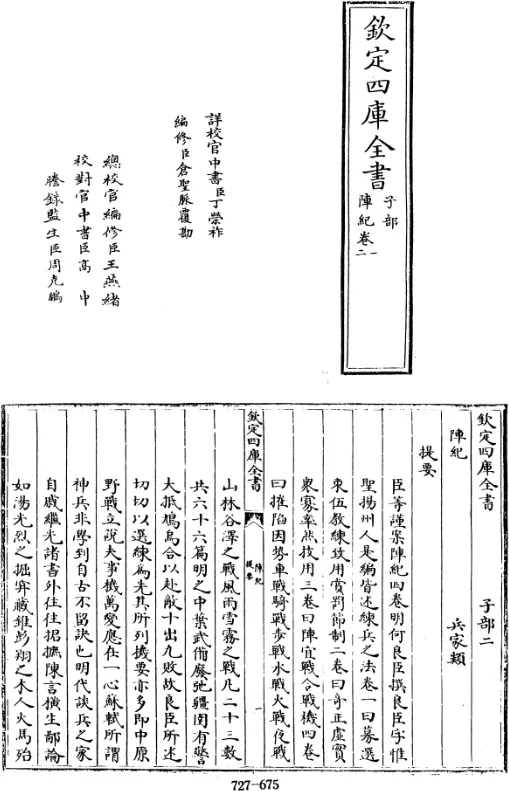 欽定四庫全書
子部
陣紀卷一
二
詳校官中書臣丁榮祚
編修臣倉聖脈覆勘
總校官編修臣王燕緒
校對官中書臣高中
謄錄監生臣周元鵬
欽定四庫全書 子部二
陣紀 兵家類
提要
臣等謹案陣紀四卷明何良臣撰良臣字惟
聖揚州人是編皆述練兵之法卷一曰募選
束伍教練致用賞罰節制二卷曰奇正虛實
衆寡率然技用三卷曰陣宜戰令戰機四卷
曰摧陷因勢車戰騎戰步戰水戰火戰夜戰
欽定四庫全書
陣紀
提要
山林谷澤之戰風雨雪霧之戰凡二十三數
共六十六篇明之中葉武備廢弛疆圉有警
大抵鳩烏合以赴敵十出九敗故良臣所述
切切以選練為先其所列機要亦多即中原
野戰立說夫事機萬變應在一心蘇軾所謂
神兵非學到自古不留訣也明代談兵之家
自戚繼光諸書外往往捃摭陳言橫生鄙論
如湯光烈之掘穽藏錐彭翔之木人火馬殆
727-675